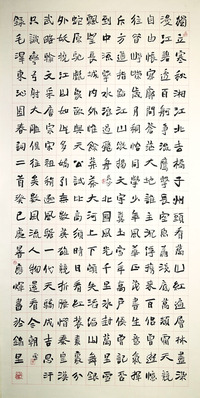 獨立寒秋湘江北去橘子州頭看萬山紅遍層林盡染
漫江碧透百舸爭流鷹擊長空魚翔淺底萬類霜天競
自由悵寥廓問蒼茫大地誰主沉浮攜來百侶曾遊憶
往昔崢嶸歲月稠恰同學少年風華正茂書生意氣揮
斥方遒指點江山激揚文字糞土當年萬戶侯曾記否
到中流擊水浪遏飛舟北國風光千里冰封萬里雪
飄望長城內外惟餘莽莽大河上下頓失滔滔山舞銀
蛇原馳蠟象欲與天公試比高須晴日看紅裝素裹分
外妖嬈江山如此多嬌引無數英雄競折腰惜秦皇漢
武略輸文采唐宗宋祖稍遜風騷一代天驕成吉思汗
只識彎弓射大雕俱往矣數風流人物還看今朝
錄毛澤東沁園春詞二首癸巳